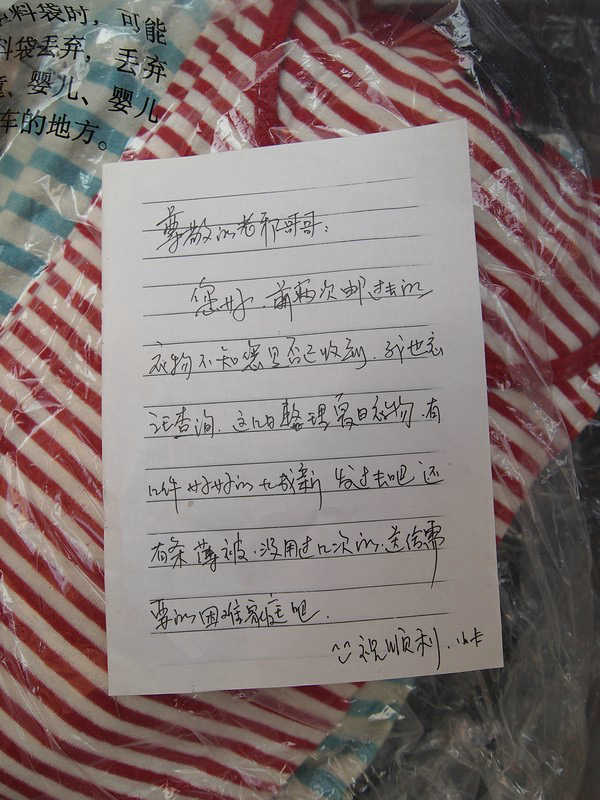 料袋时，可能
料袋丢弃，丢弃
婴儿、婴儿
车的地方。
尊敬的老邢哥哥：
您好，前两次邮过去的
衣物不知您是否已收到，我也忘
记查询，这几日整理夏日衣物，有
几件好好的九成新 发过去吧 还
有条薄被，没用过几次的，送给需
要的困难家庭吧。
祝顺利，小卡